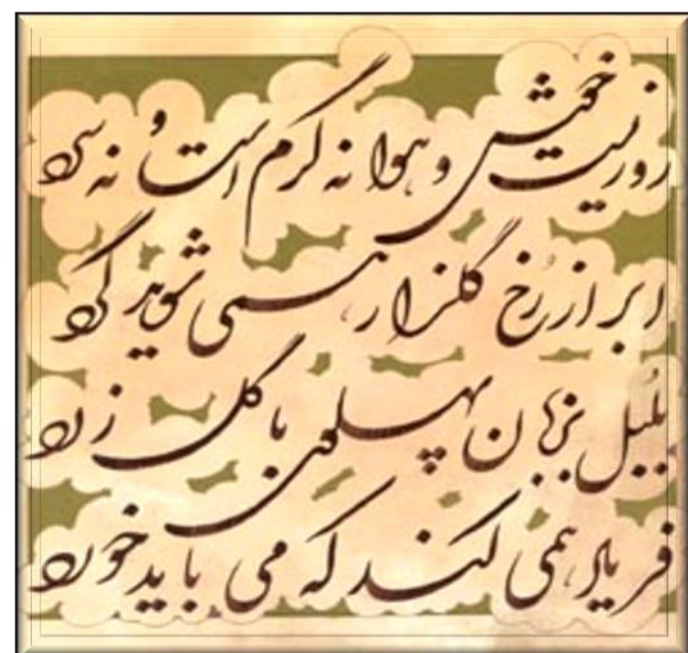 روزیست خوش و هوا نه گرم است و نه سرد
ابر از رخ گلزار همی شوید گرد
بلبل بزبان پهلوی با گل زرد
فریاد همی کند که می باید خورد